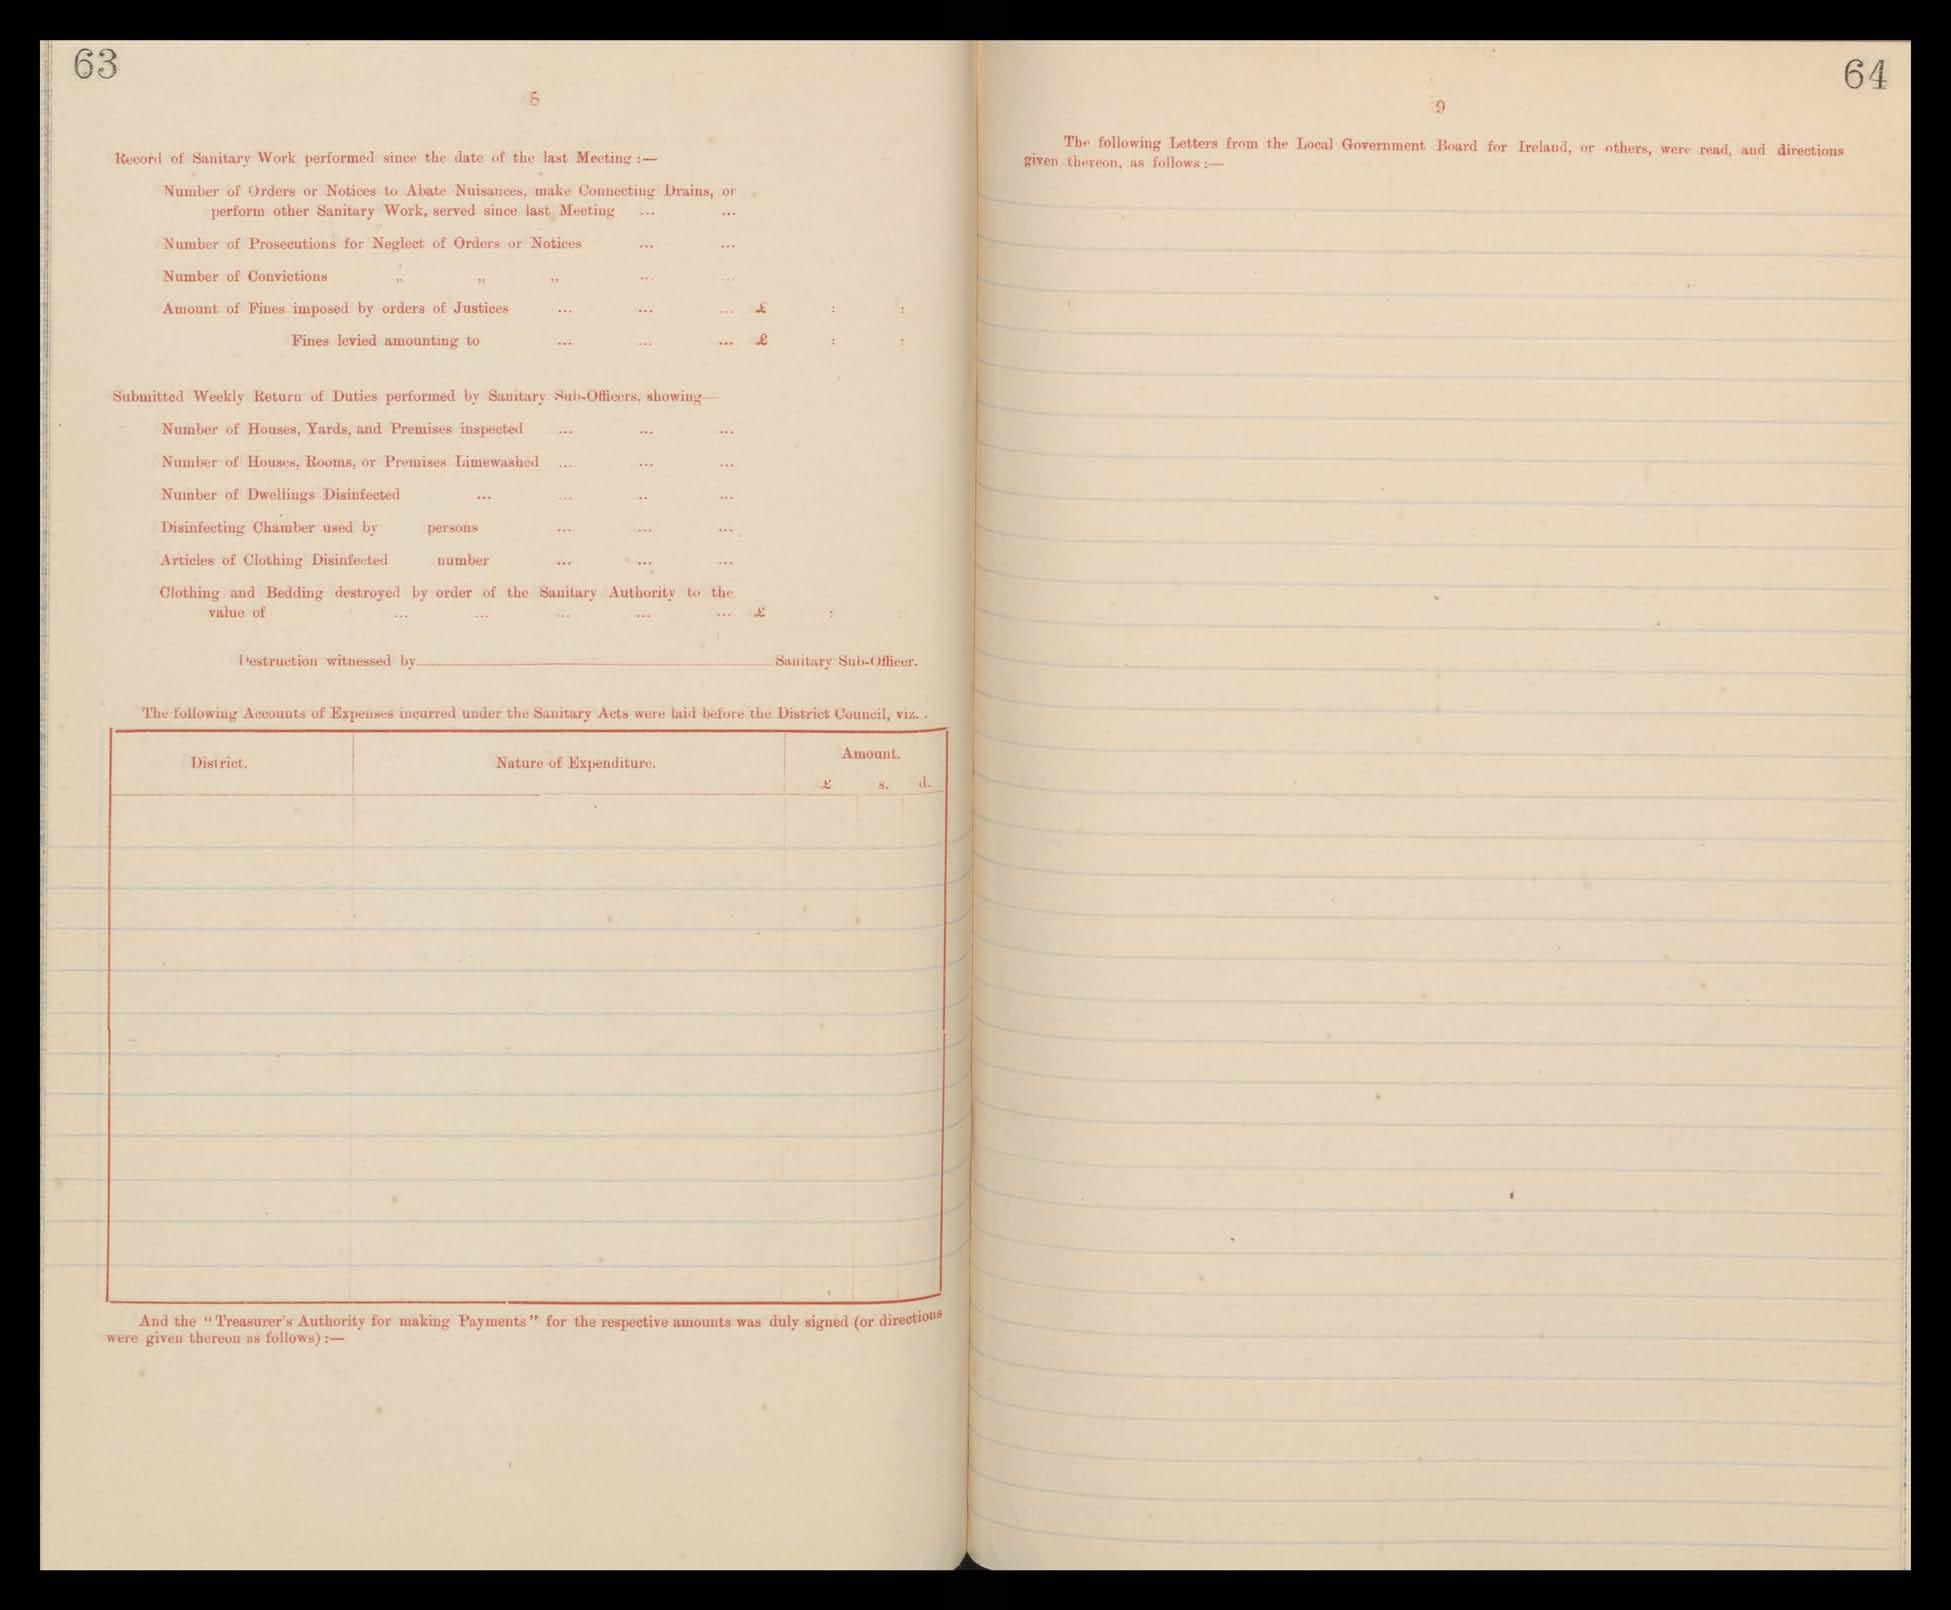 63
8
Record of Sanitary Work performed since the date of the last Meeting :—
Number of Orders or Notices to Abate Nuisances, make Connecting Drains, or
perform other Sanitary Work, served since last Meeting ... ...
Number of Prosecutions for Neglect of Orders or Notices ... ...
Number of Convictions „ „ „ ... ...
Amount of Fines imposed by orders of Justices ... ... ... £ : :
Fines levied amounting to ... ... ... £ : :
Submitted Weekly Return of Duties performed by Sanitary Sub-Officers, showing—
Number of Houses, Yards, and Premises inspected ... ... ...
Number of Houses, Rooms, or Premises Limewashed ... ... ...
Number of Dwellings Disinfected ... ... .. ...
Disinfecting Chamber used by persons ... ... ...
Articles of Clothing Disinfected number ... ... ...
Clothing and Bedding destroyed by order of the Sanitary Authority to the
value of ... ... ... ... ... £ :
Destruction witnessed by Sanitary Sub-Officer.
The following Accounts of Expenses incurred under the Sanitary Acts were laid before the District Council, viz. .
District. Nature of Expenditure. Amount.
£ s. d.
And the "Treasurer's Authority for making Payments" for the respective amounts was duly signed (or directions
were given thereon as follows) :—
64
9
The following Letters from the Local Government Board for Ireland, or others, were read, and directions
given thereon, as follows :—